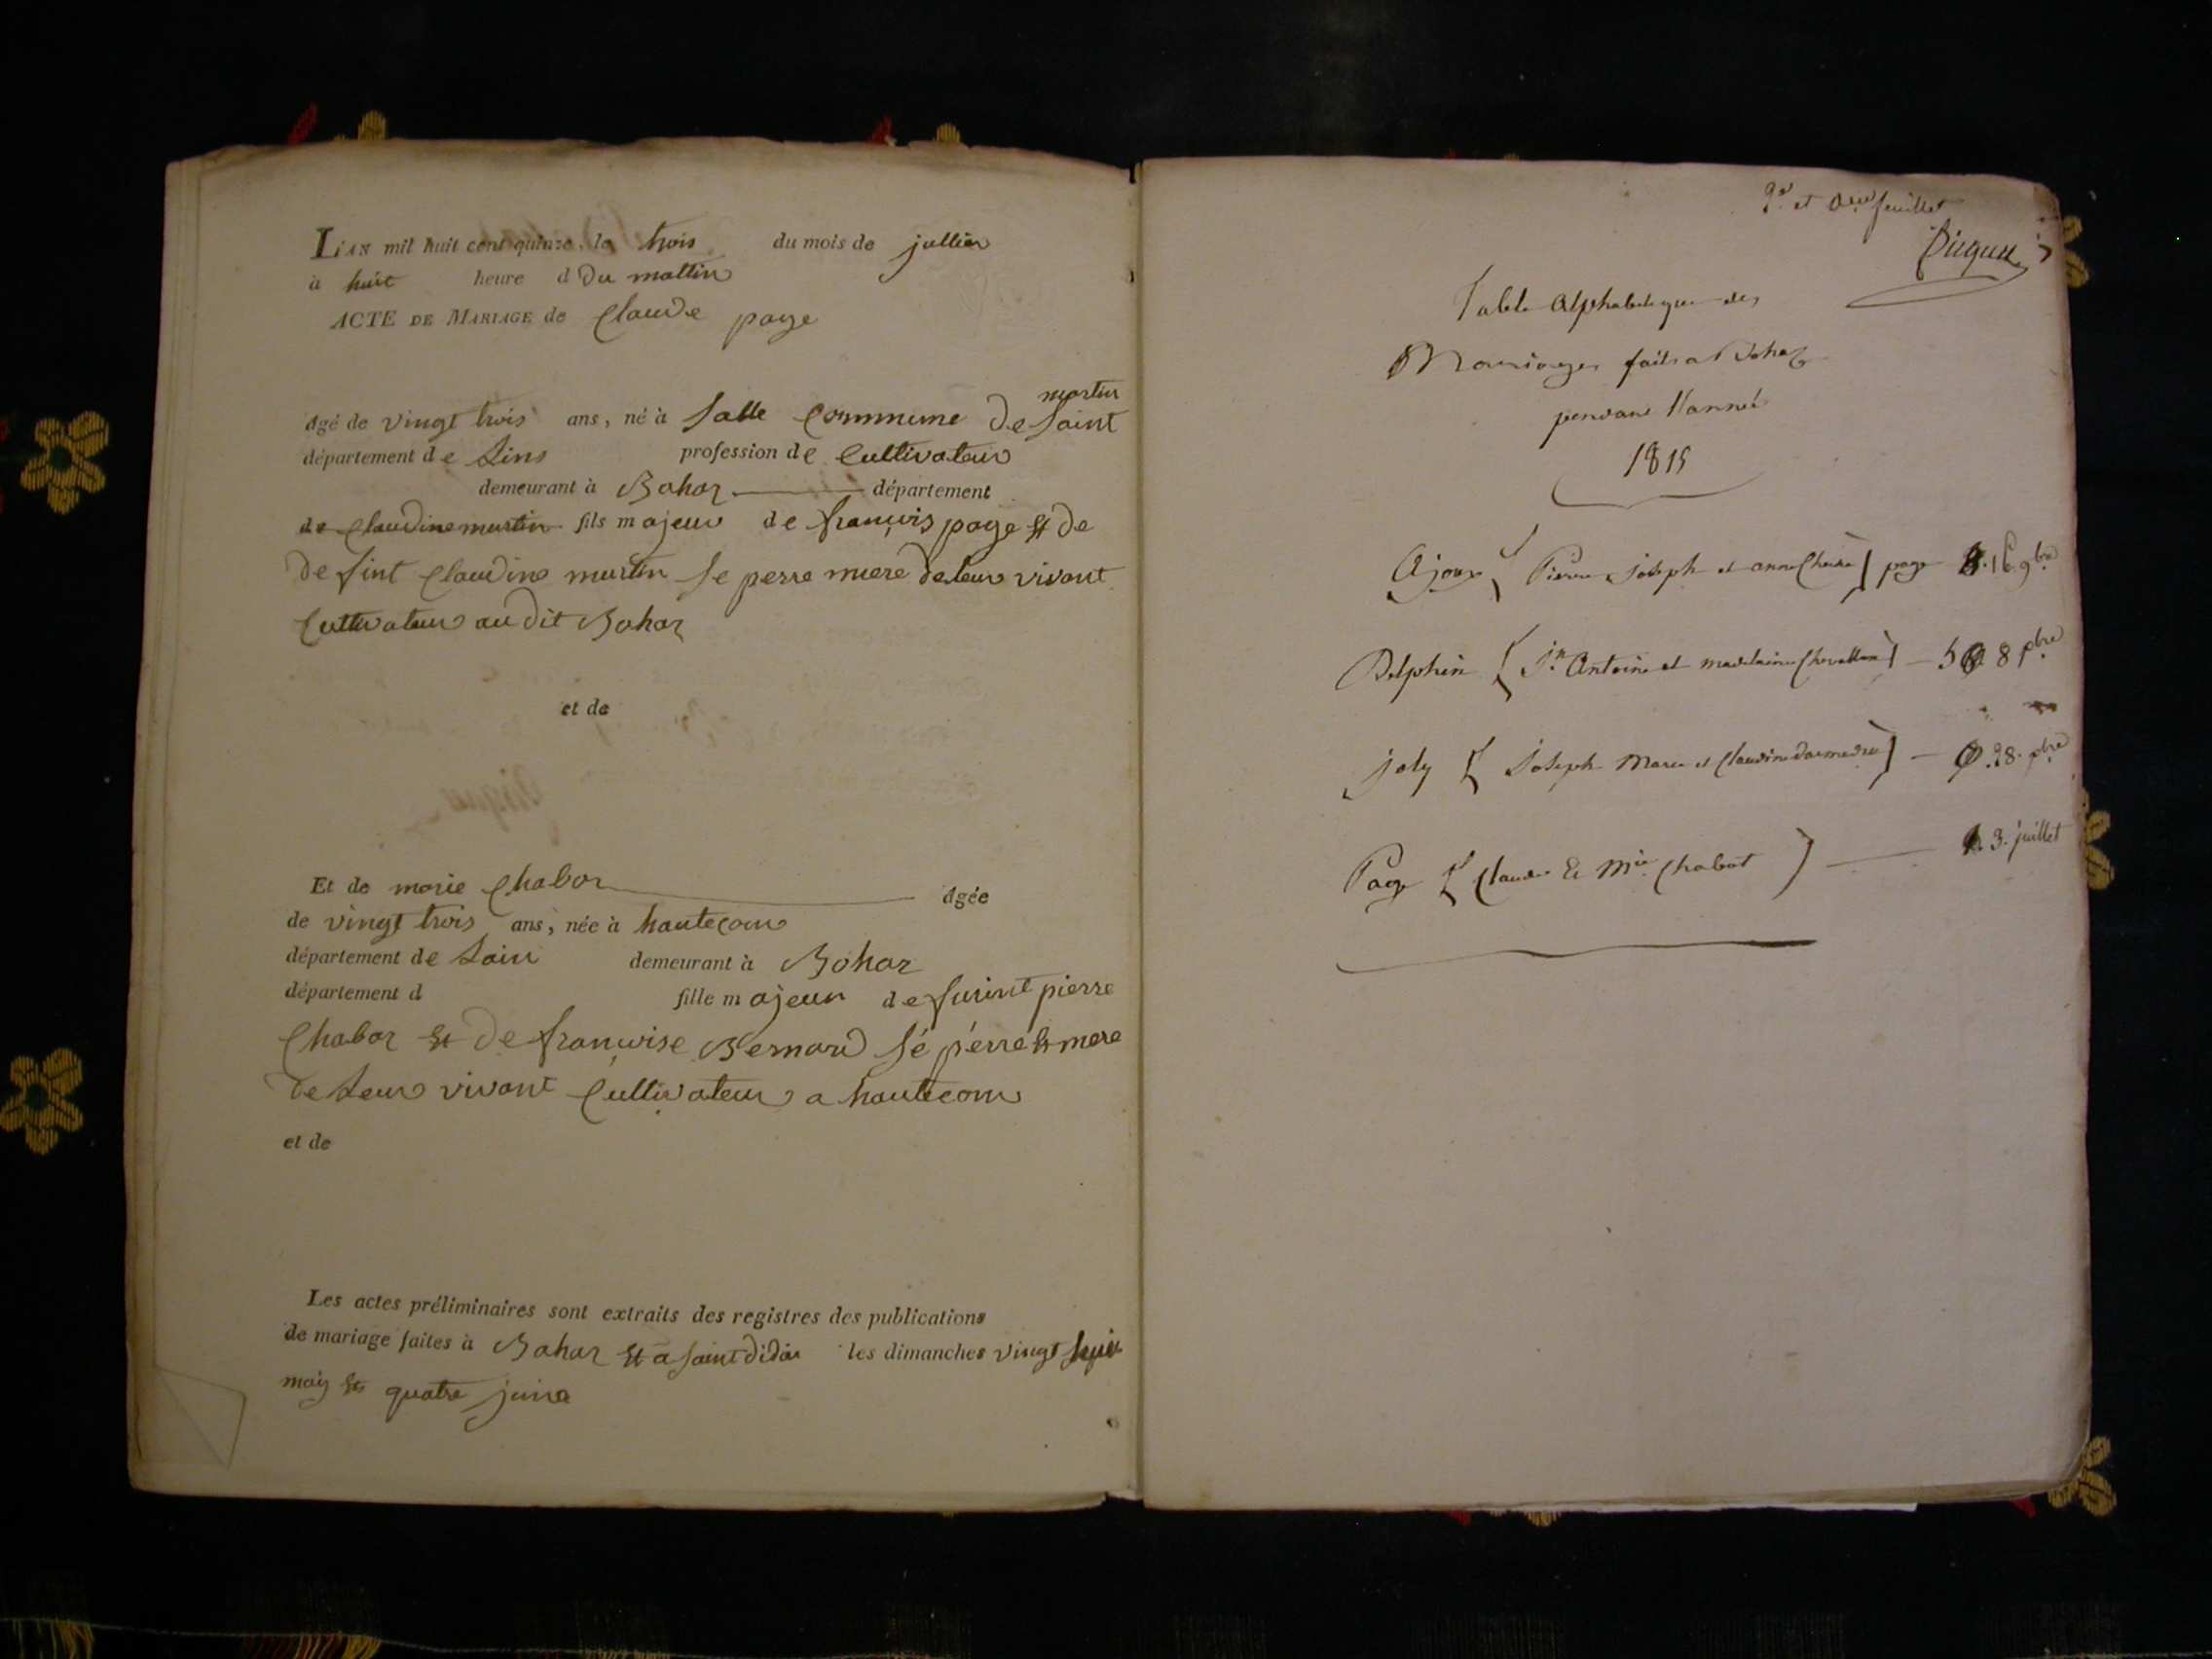 L'AN mil huit cent quinze, le trois du mois de jullier
à huit heure d du mattin
ACTE DE MARIAGE de Claude page
martin
âgé de vingt trois ans, né à Salle Commune De Saint
département de Lins profession de Cultivateur
demeurant à Bohaz département
de Claudine martin fils majeur de françois page et de
Claudine martin Se perre mere de leur vivant
Cultivateur au dit Bohaz
et de
Et de marie Chaboz âgée
de vingt trois ans, née à hautecour
département de Lain demeurant à Bohaz
département d fille majeur de pierre
Chaboz et De françoise Bernard Sé pérre et mere
De Leur vivant Cultivateur a hautecour
et de
Les actes préliminaires sont extraits des registres des publications
de mariage faites à Bohaz et a Saint didier les dimanches vingt
may et quatre juin
et feuillet
Table Alphabetique des
Mariages faits a Bohaz
pendant l'année
1815
Ajoux { Pierre Joseph et anne } page 16 9bre
Delphin { Jn Antoine et madelaine Chevallier } — 5 8 bre
Joly { Joseph Marie et Claudine } — 28. bre
Page { Claude & Mie Chabot } — 3. juillet